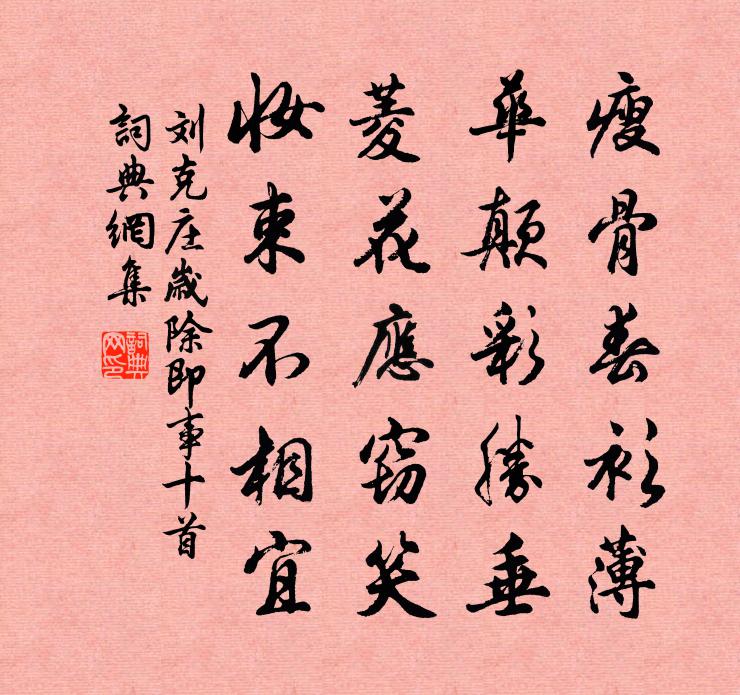 瘦骨春衫薄
華顛彩勝垂
菱花應窃笑
妝束不相宜
刘克庄歲除即事十首
詞典網集
詞典网印